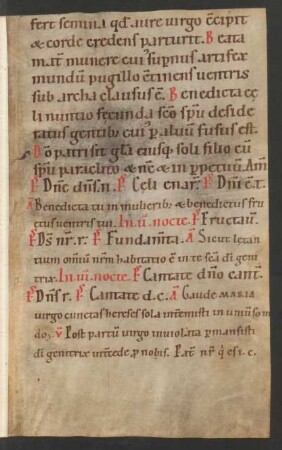 fert semina qđ aure virgo ccipit
& corde credens parturit. Beata
mat munere cui' supnus artifex
mundum pugillo ctinens ventris
sub archa clausus ē. Benedicta cę
li nuntio fecunda scō spu deside
ratus gentib; cui' p aluum fusus est.
Dō patri sit glā eiusq; soli filio cū
spu paraclito & nc & in ppetuū. Am
Ps Dne dns n. Ps Cęli enar. Ps Dni ē t.
A Benedicta tu in mulierib; & benedictus fru
ctus ventris tui. In .iii. nocte. Ps Eructau.
Ps Ds nr r. Ps Fundamta. A Sicut lętan
tium omiū nrm habitatio ē in te scā di geni
trix. In .iii. nocte. Ps Cantate dno cant.
Ps Dns r. Ps Cantate d. c. A Gaude MARIA
virgo cunctas hereses sola intemisti in uniuso mun
do. V Post partū virgo inuiolata pmansisti
di genitrix intcede p nobis. Pat nr q es i. c.